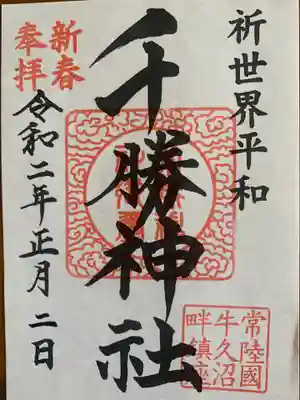 祈世界平和
常陸國
牛久沼
畔鎮座
千勝神社
新春
奉拝
令和二年正月二日